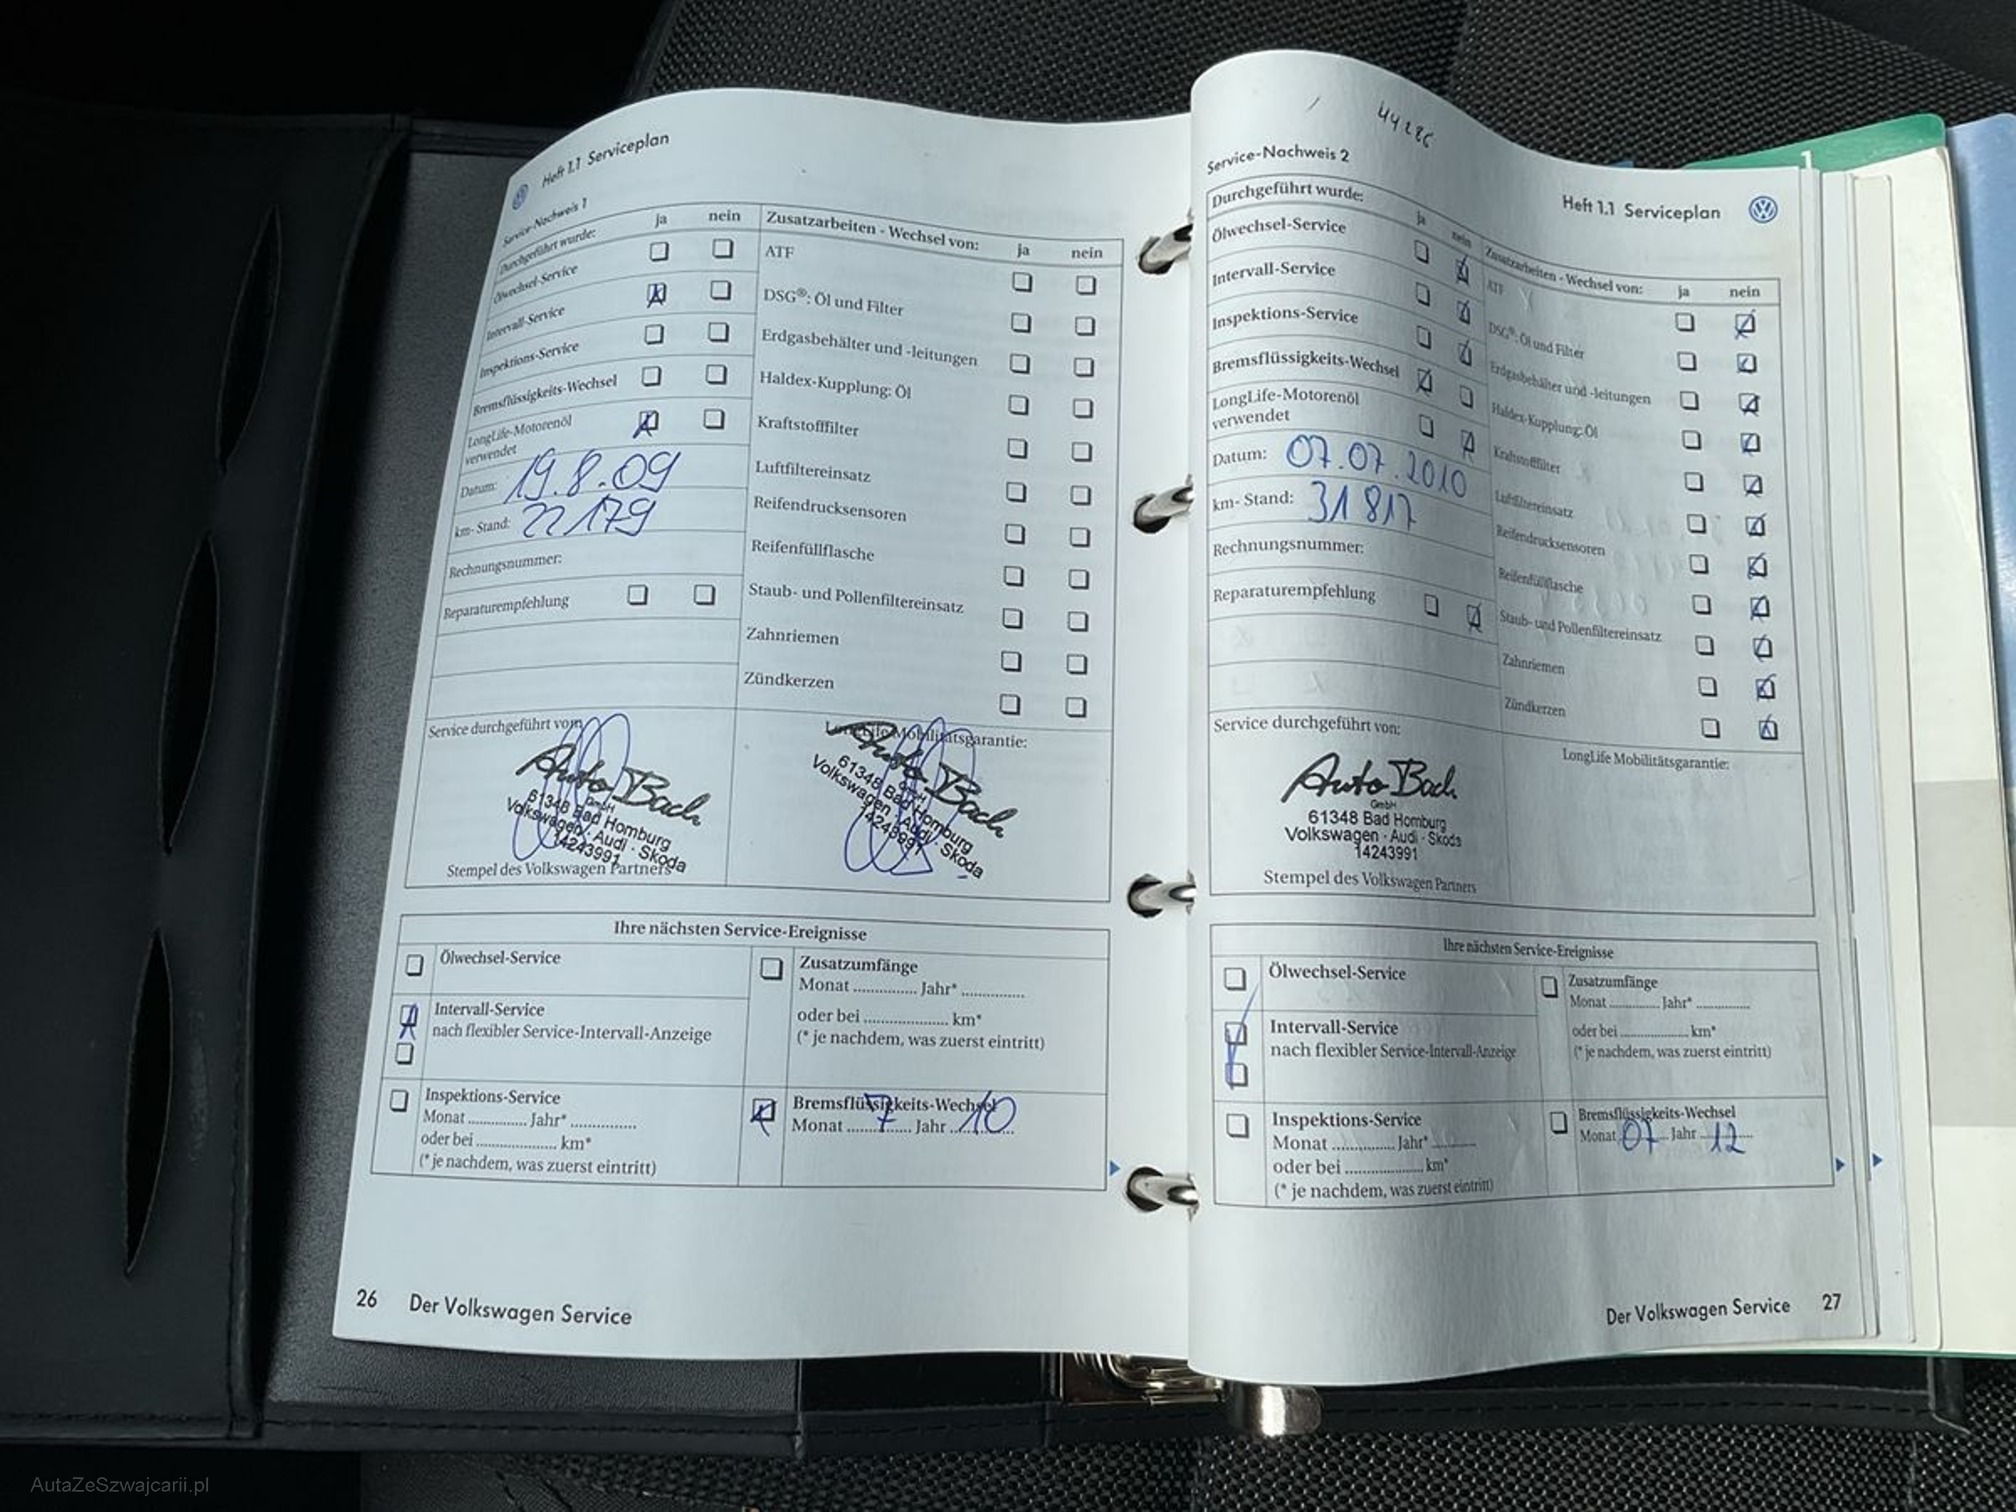 Heft 1.1 Serviceplan
Service-Nachweis 1
Durchgeführt wurde: ja nein
Ölwechsel-Service
Intervall-Service
Inspektions-Service
Bremsflüssigkeits-Wechsel
LongLife-Motorenöl
verwendet
Datum: 19.8.09
km- Stand: 22179
Rechnungsnummer:
Reparaturempfehlung
Zusatzarbeiten - Wechsel von: ja nein
ATF
DSG®: Öl und Filter
Erdgasbehälter und -leitungen
Haldex-Kupplung: Öl
Kraftstofffilter
Luftfiltereinsatz
Reifendrucksensoren
Reifenfüllflasche
Staub- und Pollenfiltereinsatz
Zahnriemen
Zündkerzen
Service durchgeführt vom
Auto Bach
GmbH
61348 Bad Homburg
Volkswagen · Audi · Skoda
14243991
Stempel des Volkswagen Partners
LongLife Mobilitätsgarantie:
Auto Bach
GmbH
61348 Bad Homburg
Volkswagen · Audi · Skoda
14243991
Ihre nächsten Service-Ereignisse
Ölwechsel-Service
Intervall-Service
nach flexibler Service-Intervall-Anzeige
Inspektions-Service
Monat ............... Jahr* ................
oder bei .................... km*
(* je nachdem, was zuerst eintritt)
Zusatzumfänge
Monat ............... Jahr* ...............
oder bei .................... km*
(* je nachdem, was zuerst eintritt)
Bremsflüssigkeits-Wechsel
Monat 7 Jahr 10
26 Der Volkswagen Service
44286
Service-Nachweis 2
Heft 1.1 Serviceplan
Durchgeführt wurde: ja nein
Ölwechsel-Service
Intervall-Service
Inspektions-Service
Bremsflüssigkeits-Wechsel
LongLife-Motorenöl
verwendet
Datum: 07.07.2010
km- Stand: 31817
Rechnungsnummer:
Reparaturempfehlung
Zusatzarbeiten - Wechsel von: ja nein
ATF
DSG®: Öl und Filter
Erdgasbehälter und -leitungen
Haldex-Kupplung: Öl
Kraftstofffilter
Luftfiltereinsatz
Reifendrucksensoren
Reifenfüllflasche
Staub- und Pollenfiltereinsatz
Zahnriemen
Zündkerzen
Service durchgeführt von:
Auto Bach
GmbH
61348 Bad Homburg
Volkswagen · Audi · Skoda
14243991
Stempel des Volkswagen Partners
LongLife Mobilitätsgarantie:
Ihre nächsten Service-Ereignisse
Ölwechsel-Service
Intervall-Service
nach flexibler Service-Intervall-Anzeige
Inspektions-Service
Monat ............... Jahr* ...............
oder bei .................... km*
(* je nachdem, was zuerst eintritt)
Zusatzumfänge
Monat ............... Jahr* ...............
oder bei .................... km*
(* je nachdem, was zuerst eintritt)
Bremsflüssigkeits-Wechsel
Monat 07 Jahr 12
Der Volkswagen Service 27
AutaZeSzwajcarii.pl